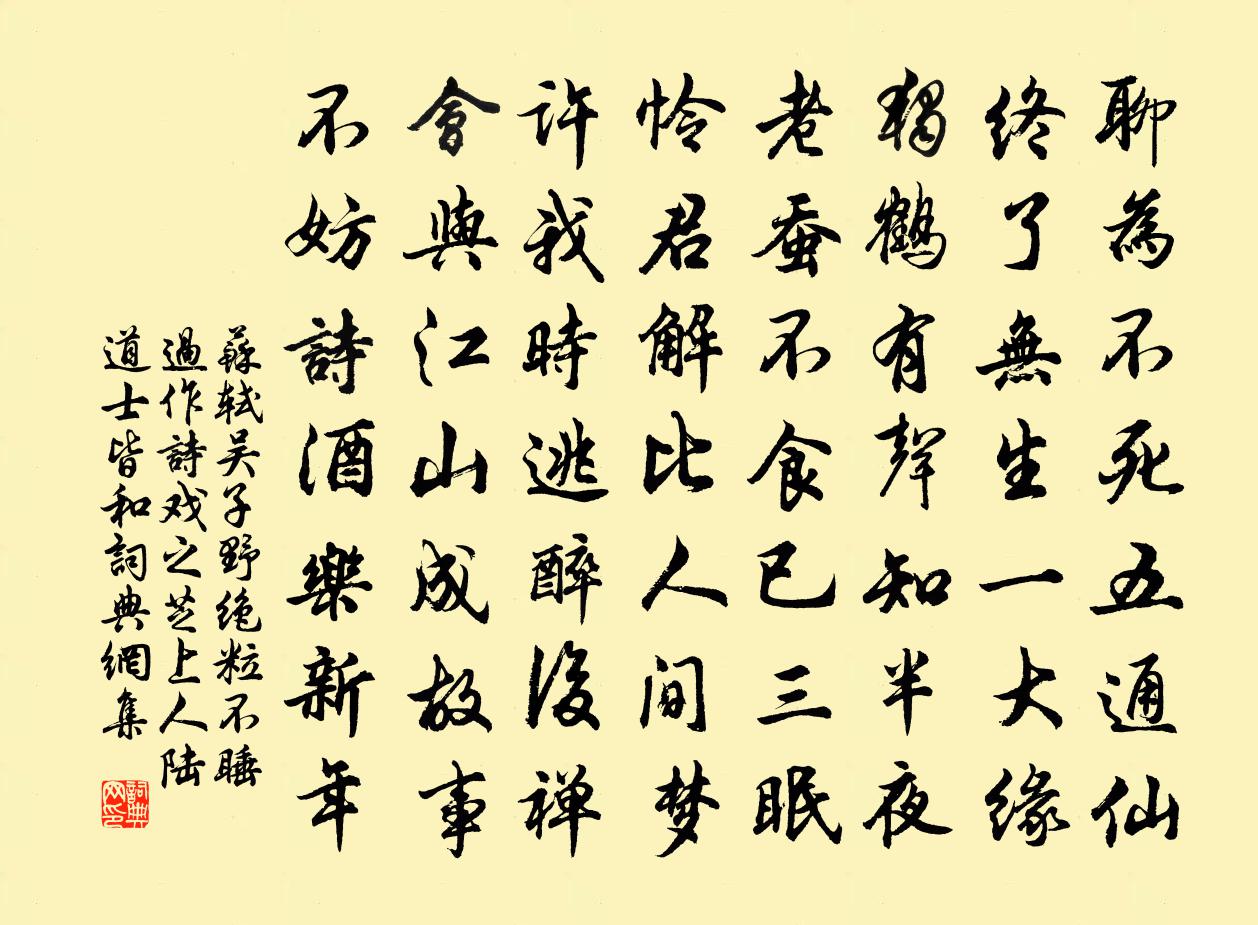 聊為不死五通仙
終了無生一大緣
獨鶴有聲知半夜
老蚕不食已三眠
怜君解比人间梦
許我時逃醉後禅
會與江山成故事
不妨詩酒樂新年
蘇軾吴子野绝粒不睡
過作詩戏之芝上人陆
道士皆和詞典網集
詞典网印